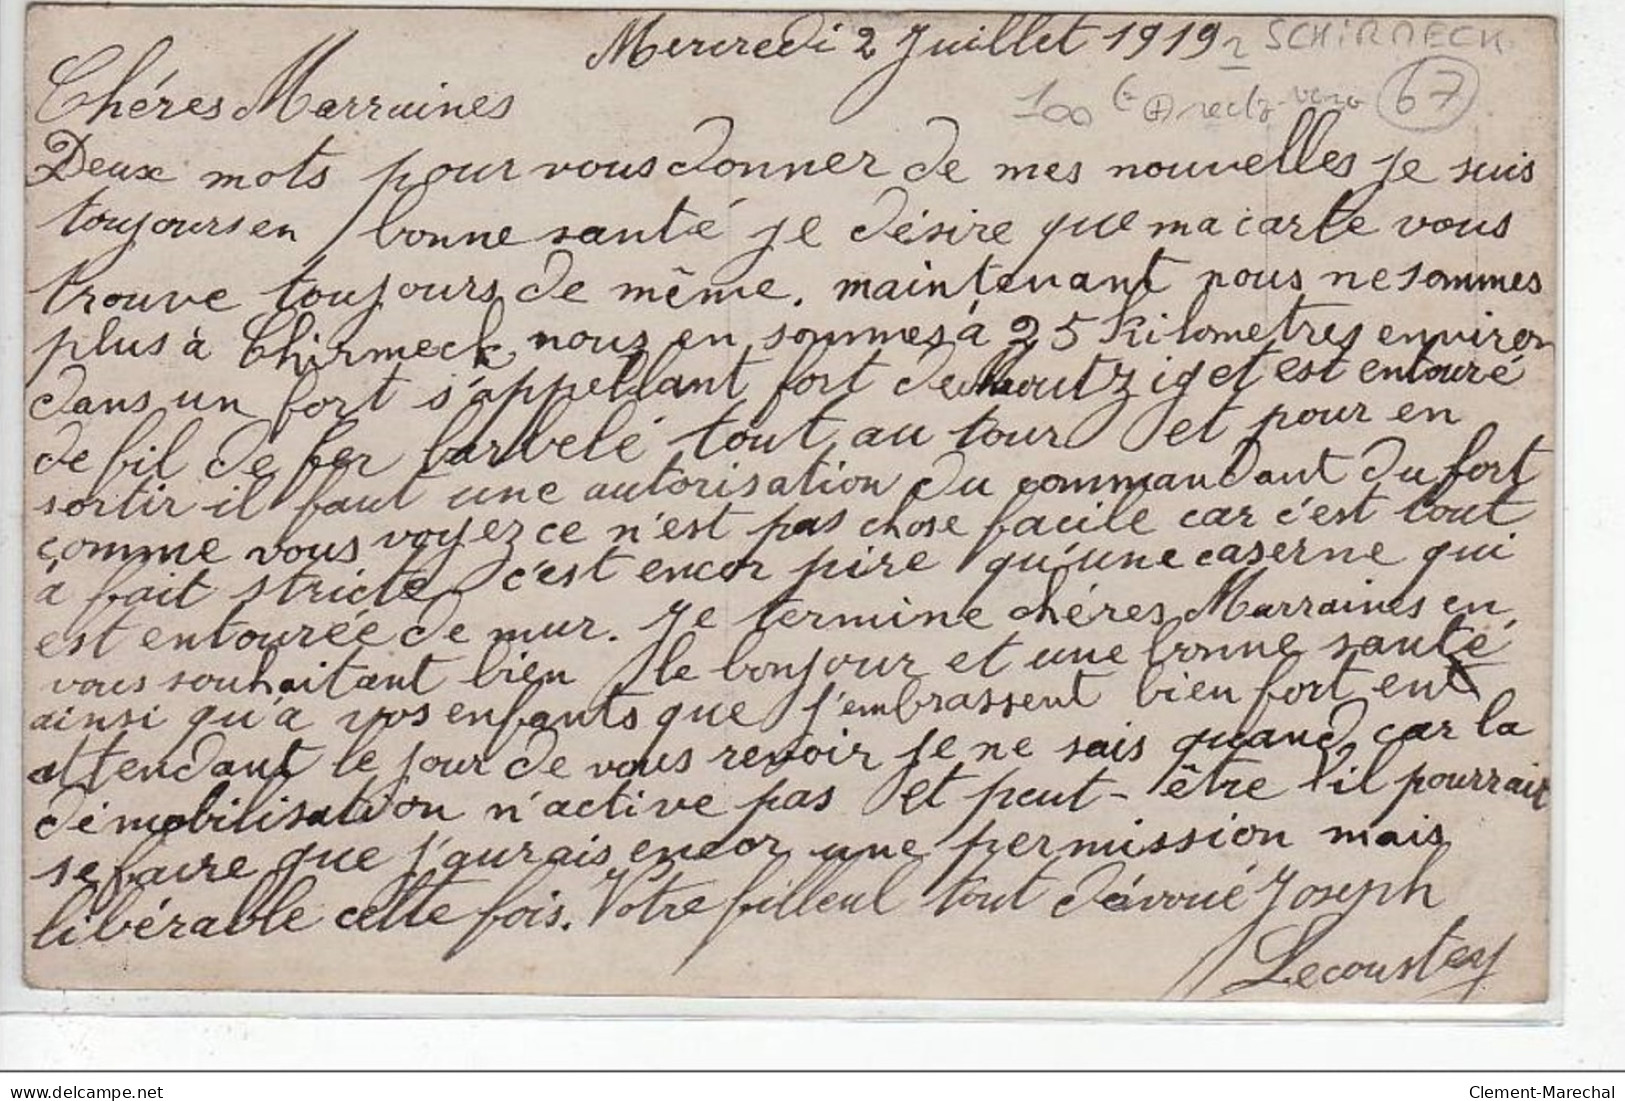 Mercredi 2 Juillet 1919
SCHIRMECK
100 67
Chéres Marraines
Deux mots pour vous donner de mes nouvelles je suis
toujours en bonne santé je désire que ma carte vous
trouve toujours de même. maintenant nous ne sommes
plus à Chirmeck nous en sommes à 25 Kilometres environ
dans un fort s'appellant fort de Moutzig et est entouré
de fil de fer barbelé tout au tour et pour en
sortir il faut une autorisation du commandant du fort
comme vous voyez ce n'est pas chose facile car c'est tout
à fait stricte c'est encor pire qu'une caserne qui
est entourée de mur. Je termine chéres Marraines en
vous souhaitant bien le bonjour et une bonne santé
ainsi qu'à vos enfants que j'embrassent bien fort en
attendant le jour de vous revoir je ne sais quand car la
démobilisation n'active pas et peut-être il pourrait
se faire que j'aurais encor une permission mais
libérable cette fois. Votre filleul tout dévoué Joseph
Lecoustey
www.delcampe.net
Clement-Marechal